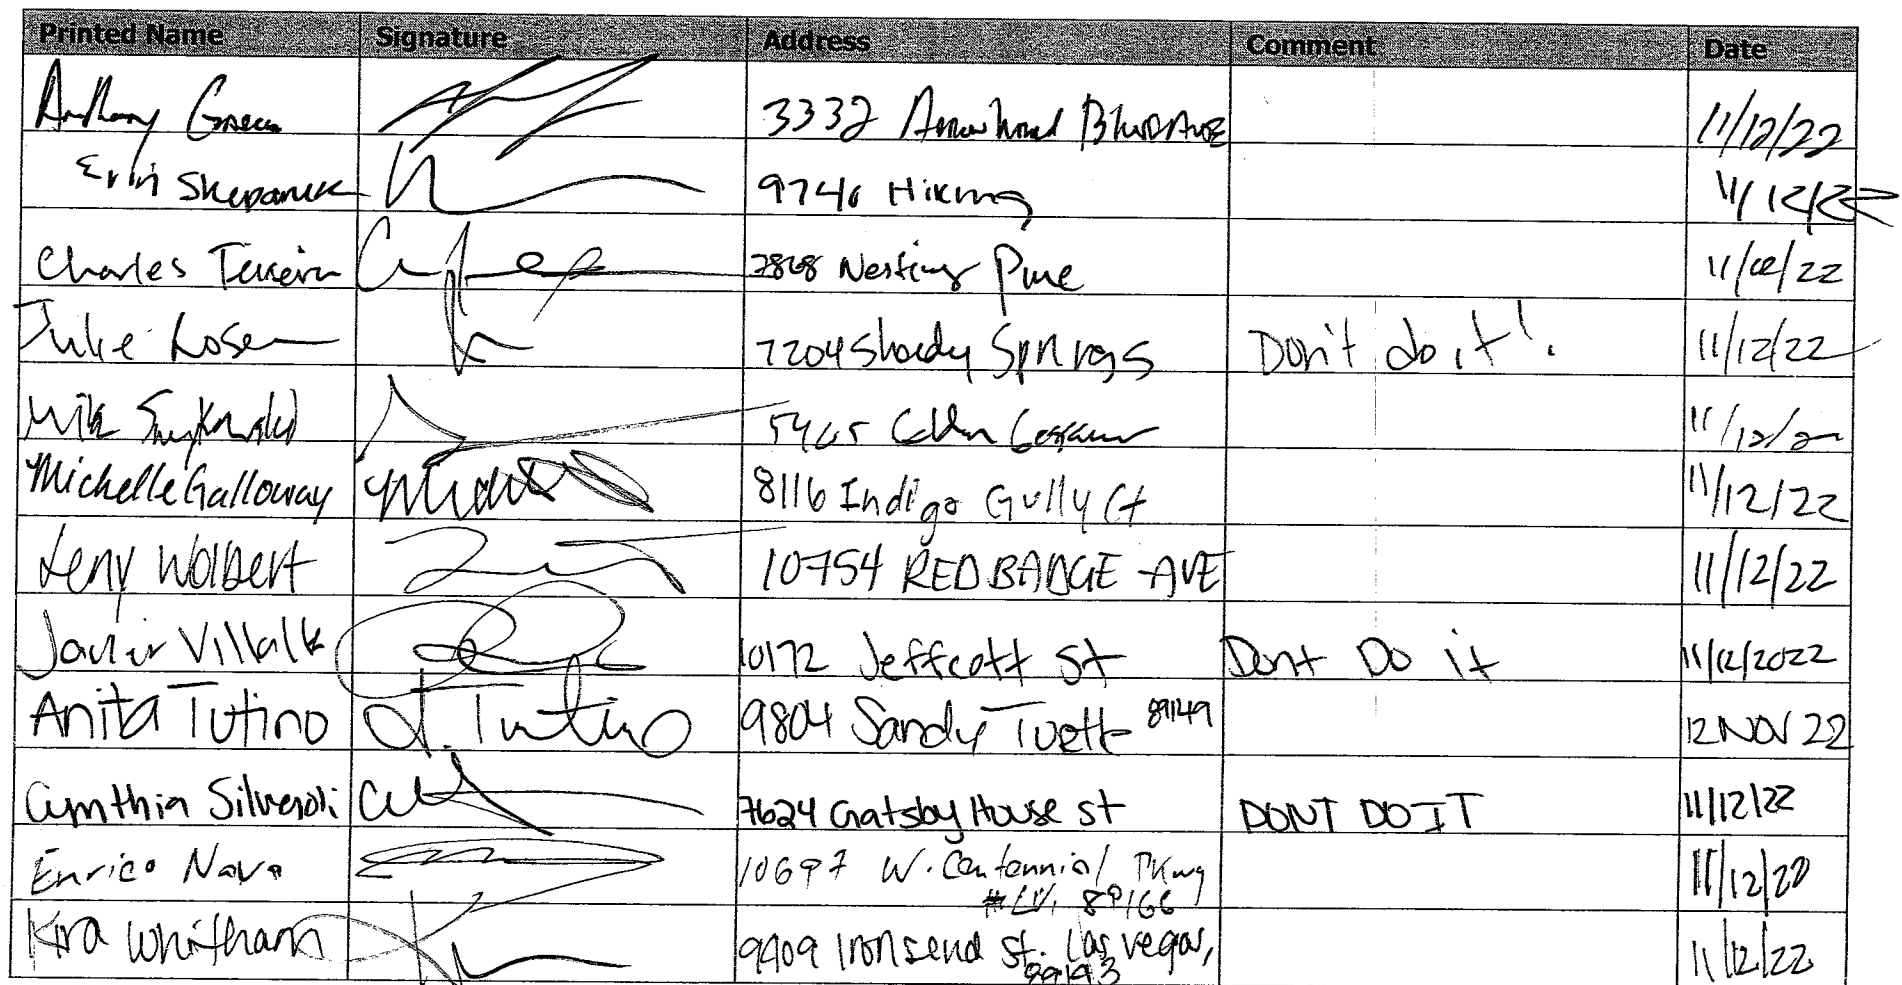 Printed Name Signature Address Comment Date
Anthony Green 3332 Arrowhead Bluff Ave 11/12/22
Erin Skepanek 9746 Hiking 11/12/22
Charles Teixeira 7868 Nesting Pine 11/12/22
Julie Rosen 7204 Shady Springs Don't do it! 11/12/22
Mike 5465 11/12/22
Michelle Galloway 8116 Indigo Gully Ct 11/12/22
Leny Wolbert 10754 RED BADGE AVE 11/12/22
Javier 10172 Jeffcott St Dont Do it 11/12/2022
Anita Tutino A. Tutino 9804 Sandy 89149 12 NOV 22
Cynthia 7624 Gatsby House St DONT DO IT 11/12/22
Enrico Nava 10697 W. Centennial Pkwy 11/12/22
# LV, 89166
Kira Whitham 9409 Ironsend St. Las Vegas, 11/12/22